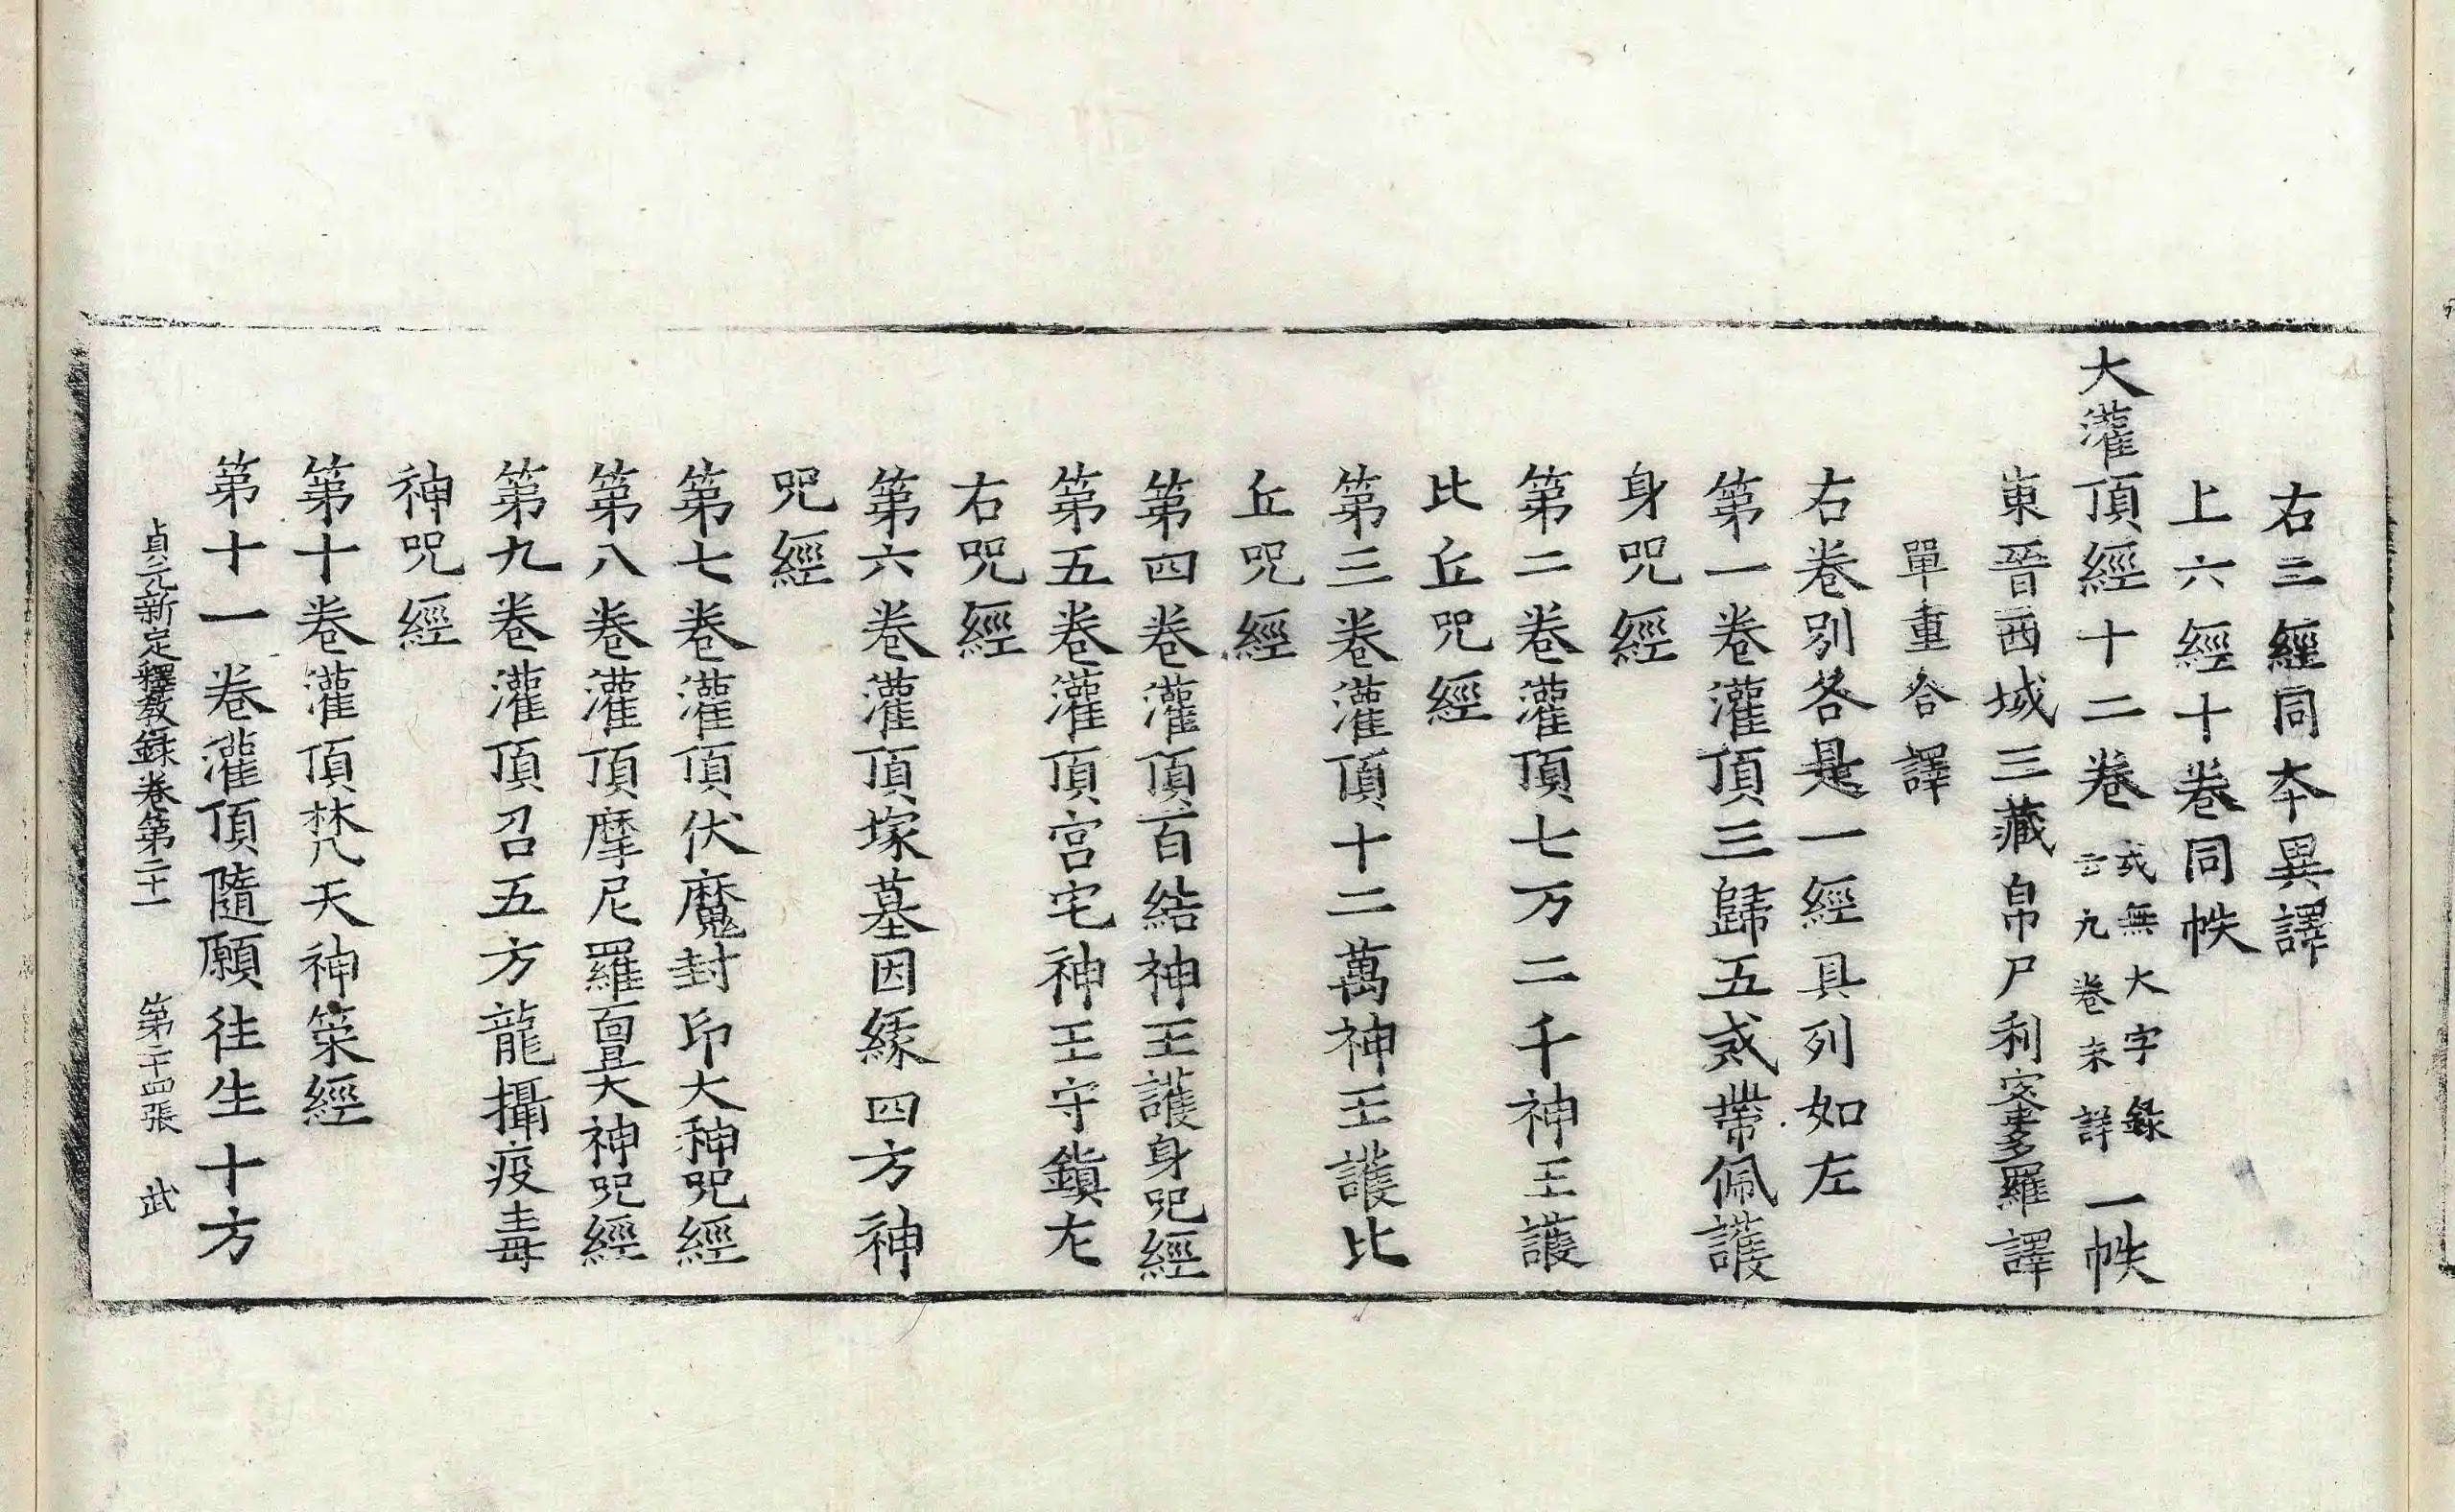 右三經同本異譯
上六經十卷同帙
大灌頂經十二卷或無大字錄云九卷未詳一帙
東晉西域三藏帛尸利蜜多羅譯
單重合譯
右卷別各是一經具列如左
第一卷灌頂三歸五戒帶佩護
身呪經
第二卷灌頂七万二千神王護
比丘呪經
第三卷灌頂十二萬神王護比
丘呪經
第四卷灌頂百結神王護身呪經
第五卷灌頂宮宅神王守鎮左
右呪經
第六卷灌頂塚墓因緣四方神
呪經
第七卷灌頂伏魔封印大神呪經
第八卷灌頂摩尼羅亶大神呪經
第九卷灌頂召五方龍攝疫毒
神呪經
第十卷灌頂梵天神策經
第十一卷灌頂隨願往生十方
貞元新定釋教錄卷第二十一 第二十四張 武